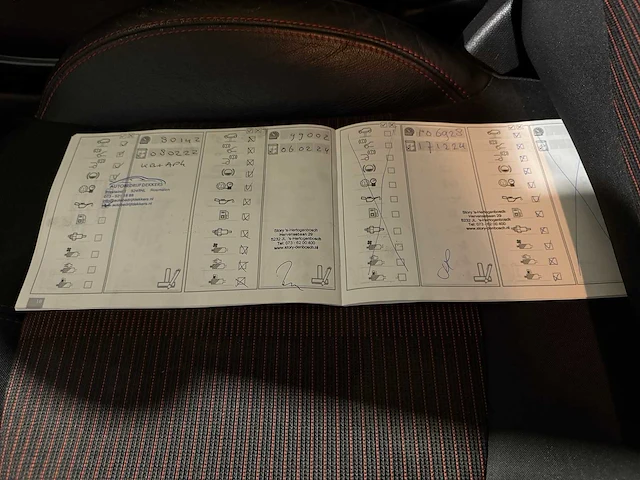 80142
080222
KB+APK
AUTOBEDRIJF DEKKERS
99002
060224
Story 's-Hertogenbosch
Hervensebaan 29
5232 JL 's-Hertogenbosch
Tel. 073 - 52 00 600
www.story-denbosch.nl
106928
171224
Story 's-Hertogenbosch
Hervensebaan 29
5232 JL 's-Hertogenbosch
Tel. 073 - 52 00 600
www.story-denbosch.nl